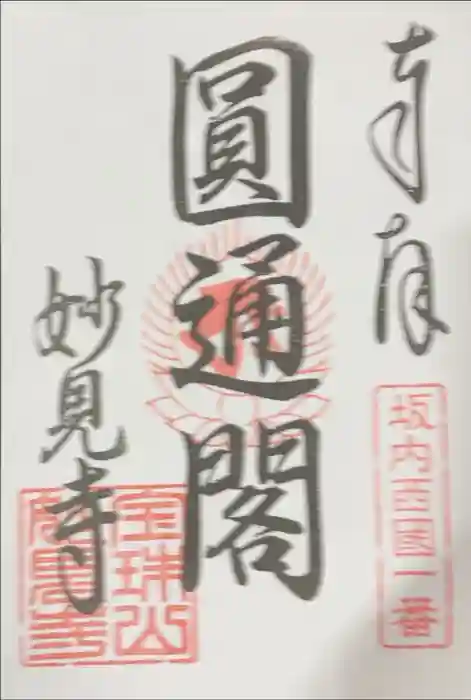 奉拝
坂内西国一番
圓通閣
妙見寺
宝珠山
妙見寺